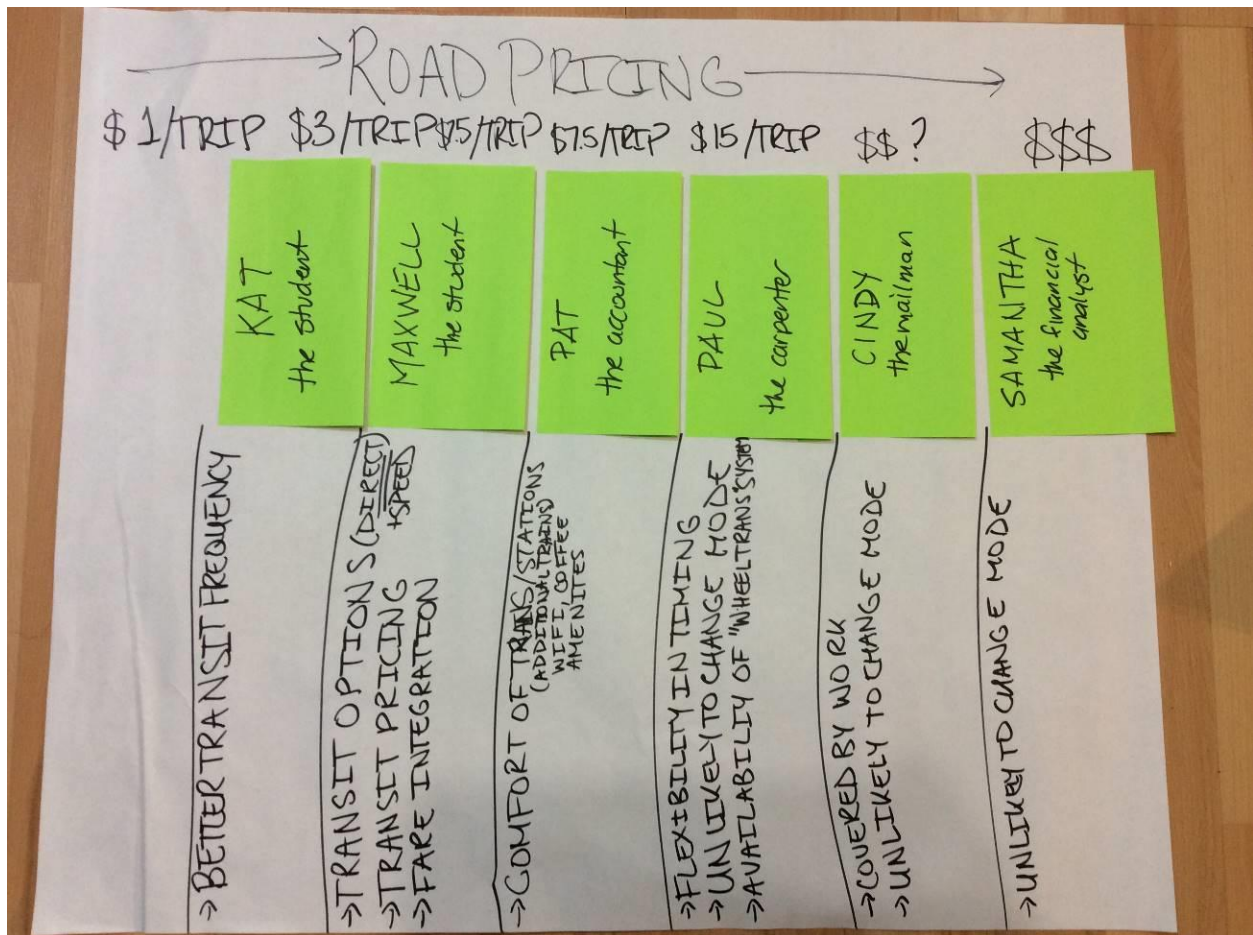 ROAD PRICING
$1/TRIP $3/TRIP $7.5/TRIP $15/TRIP $$? $$$
KAT
the student
MAXWELL
the student
PAT
the accountant
PAUL
the carpenter
CINDY
the mailman
SAMANTHA
the financial
analyst
→BETTER TRANSIT FREQUENCY
→TRANSIT OPTIONS (DIRECT)
+SPEED
→TRANSIT PRICING
→FARE INTEGRATION
→COMFORT OF /STATIONS
(ADDITIONAL TRAINS)
WIFI, COFFEE
AMENITES
→FLEXIBILITY IN TIMING
→UNLIKELY TO CHANGE MODE
→AVAILABILIY OF "WHEELTRANS" SYSTEM
→COVERED BY WORK
→UNLIKELY TO CHANGE MODE
→UNLIKELY TO CHANGE MODE